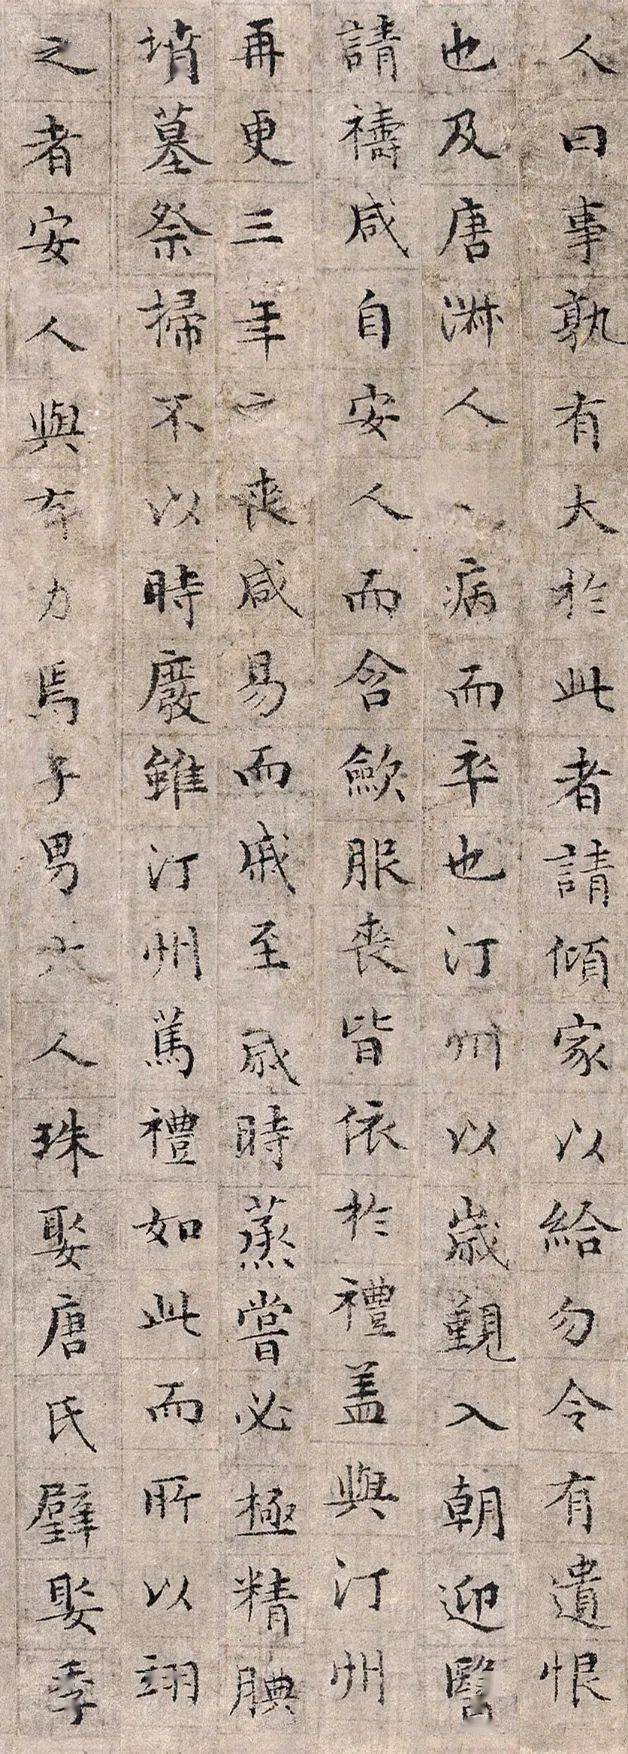 人曰事孰有大於此者請傾家以給勿令有遺恨
也及唐淑人病而卒也汀州以歲覲入朝迎醫
請禱咸自安人而含歛服喪皆依於禮盖與汀州
再更三年之喪咸易而戚至歲時蒸嘗必極精腆
墳墓祭掃不以時廢雖汀州篤禮如此而所以翊
之者安人與有力焉子男六人珠娶唐氏璧娶季